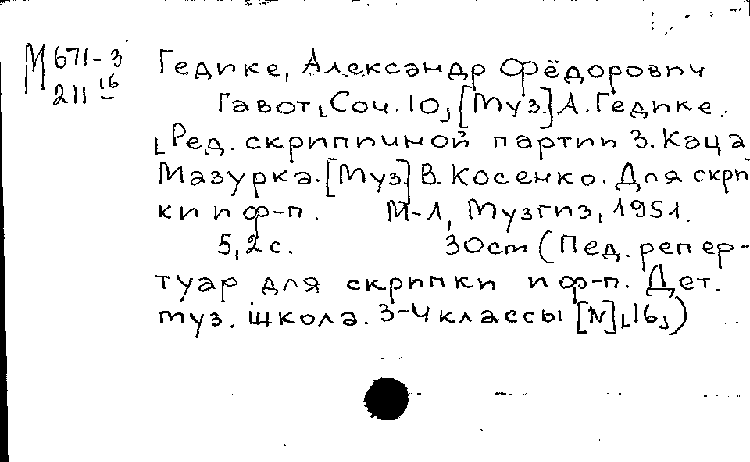 М 671-3
211 16
Гедике, Александр Фёдорович
Гавот ⌊Соч. 10⌋ [Муз.] А. Гедике.
⌊Ред. скрипичной партии З. Каца
Мазурка. [Муз] В. Косенко. Для скрип
ки и ф-п. М-Л, Музгиз, 1951.
5, 2 с. 30cm (Пед. репер-
туар для скрипки и ф-п. Дет.
муз. школа. 3-4 классы [N] ⌊16⌋)